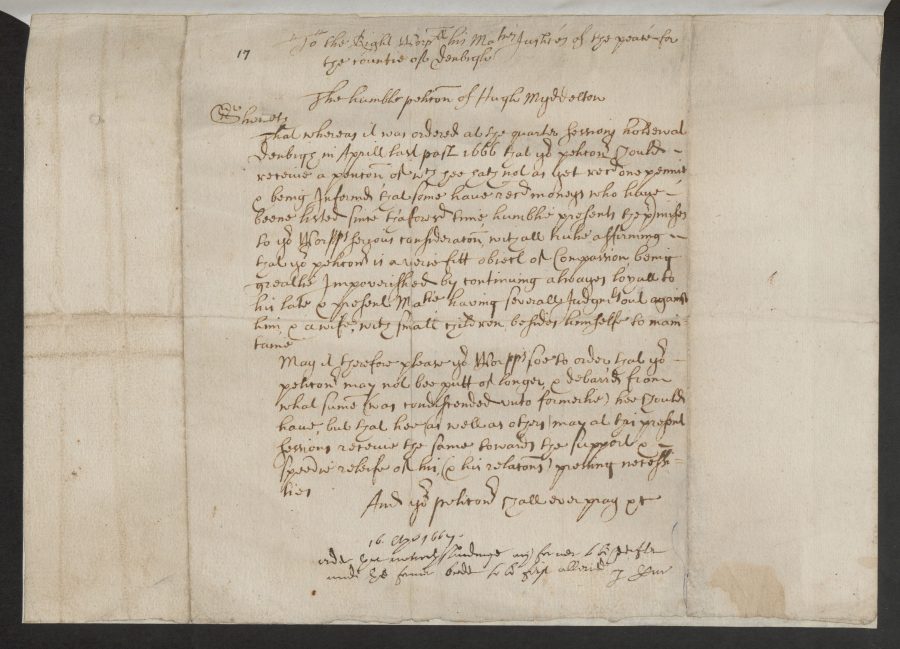 17
To the Right Worpll his Maties Justices of the peace for
the countie of Denbigh
The humble peticon of Hugh Myddelton
Sheweth
That whereas it was ordered at the quarter sessions holden at
Denbigh in Aprill last past 1666 that yor peticonr should
receive a pencon of wch hee hath not as yet recd one pennie
& being Informd that some have recd moneys who have
beene listed since thaforesd time humblie presents the pmisses
to yor Worpps serious consideraton, withall
that yor peticonr is a verie fitt object of Compassion being
greatlie Impoverished by continuing alwayes loyall to
his late & present Matie having severall Judgmts out against
him, & a wife, with small children besides himselfe to main-
taine
May it therefore please yor Worpps soe to order that yor
peticonr may not bee putt of longer, & debarrd from
what summe (was condiscended unto formerlie) hee should
have, but that hee (as well as others) may at this present
sessions receive the same towards the support &
speedie releife of his (& his relacons) pressing necessi-
ties
And yor peticonr shall ever pray &c
16 Apr 1667